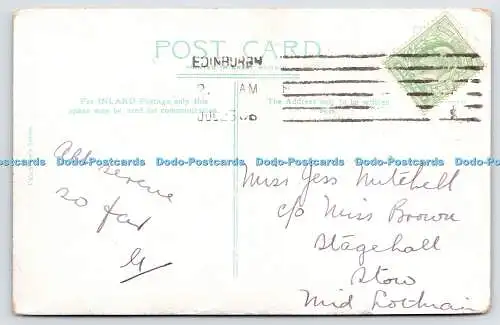 POST CARD
EDINBURGH
AM
JUL 23 06
For INLAND Postage only this
space may be used for communication.
The Address only to be written
here.
Dodo-Postcards Dodo-Postcards Dodo-Postcards Dodo-Postcards Dodo-Postcards Dodo-Postcards
All serene
so far
G
Miss Jess Mitchell
c/o Miss Brown
Stagehall
Stow
Mid Lothian